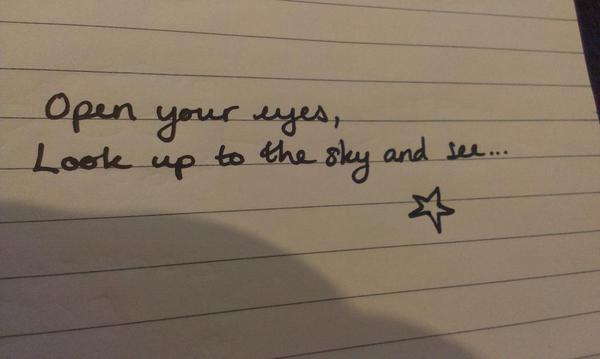 Open your eyes,
Look up to the sky and see...